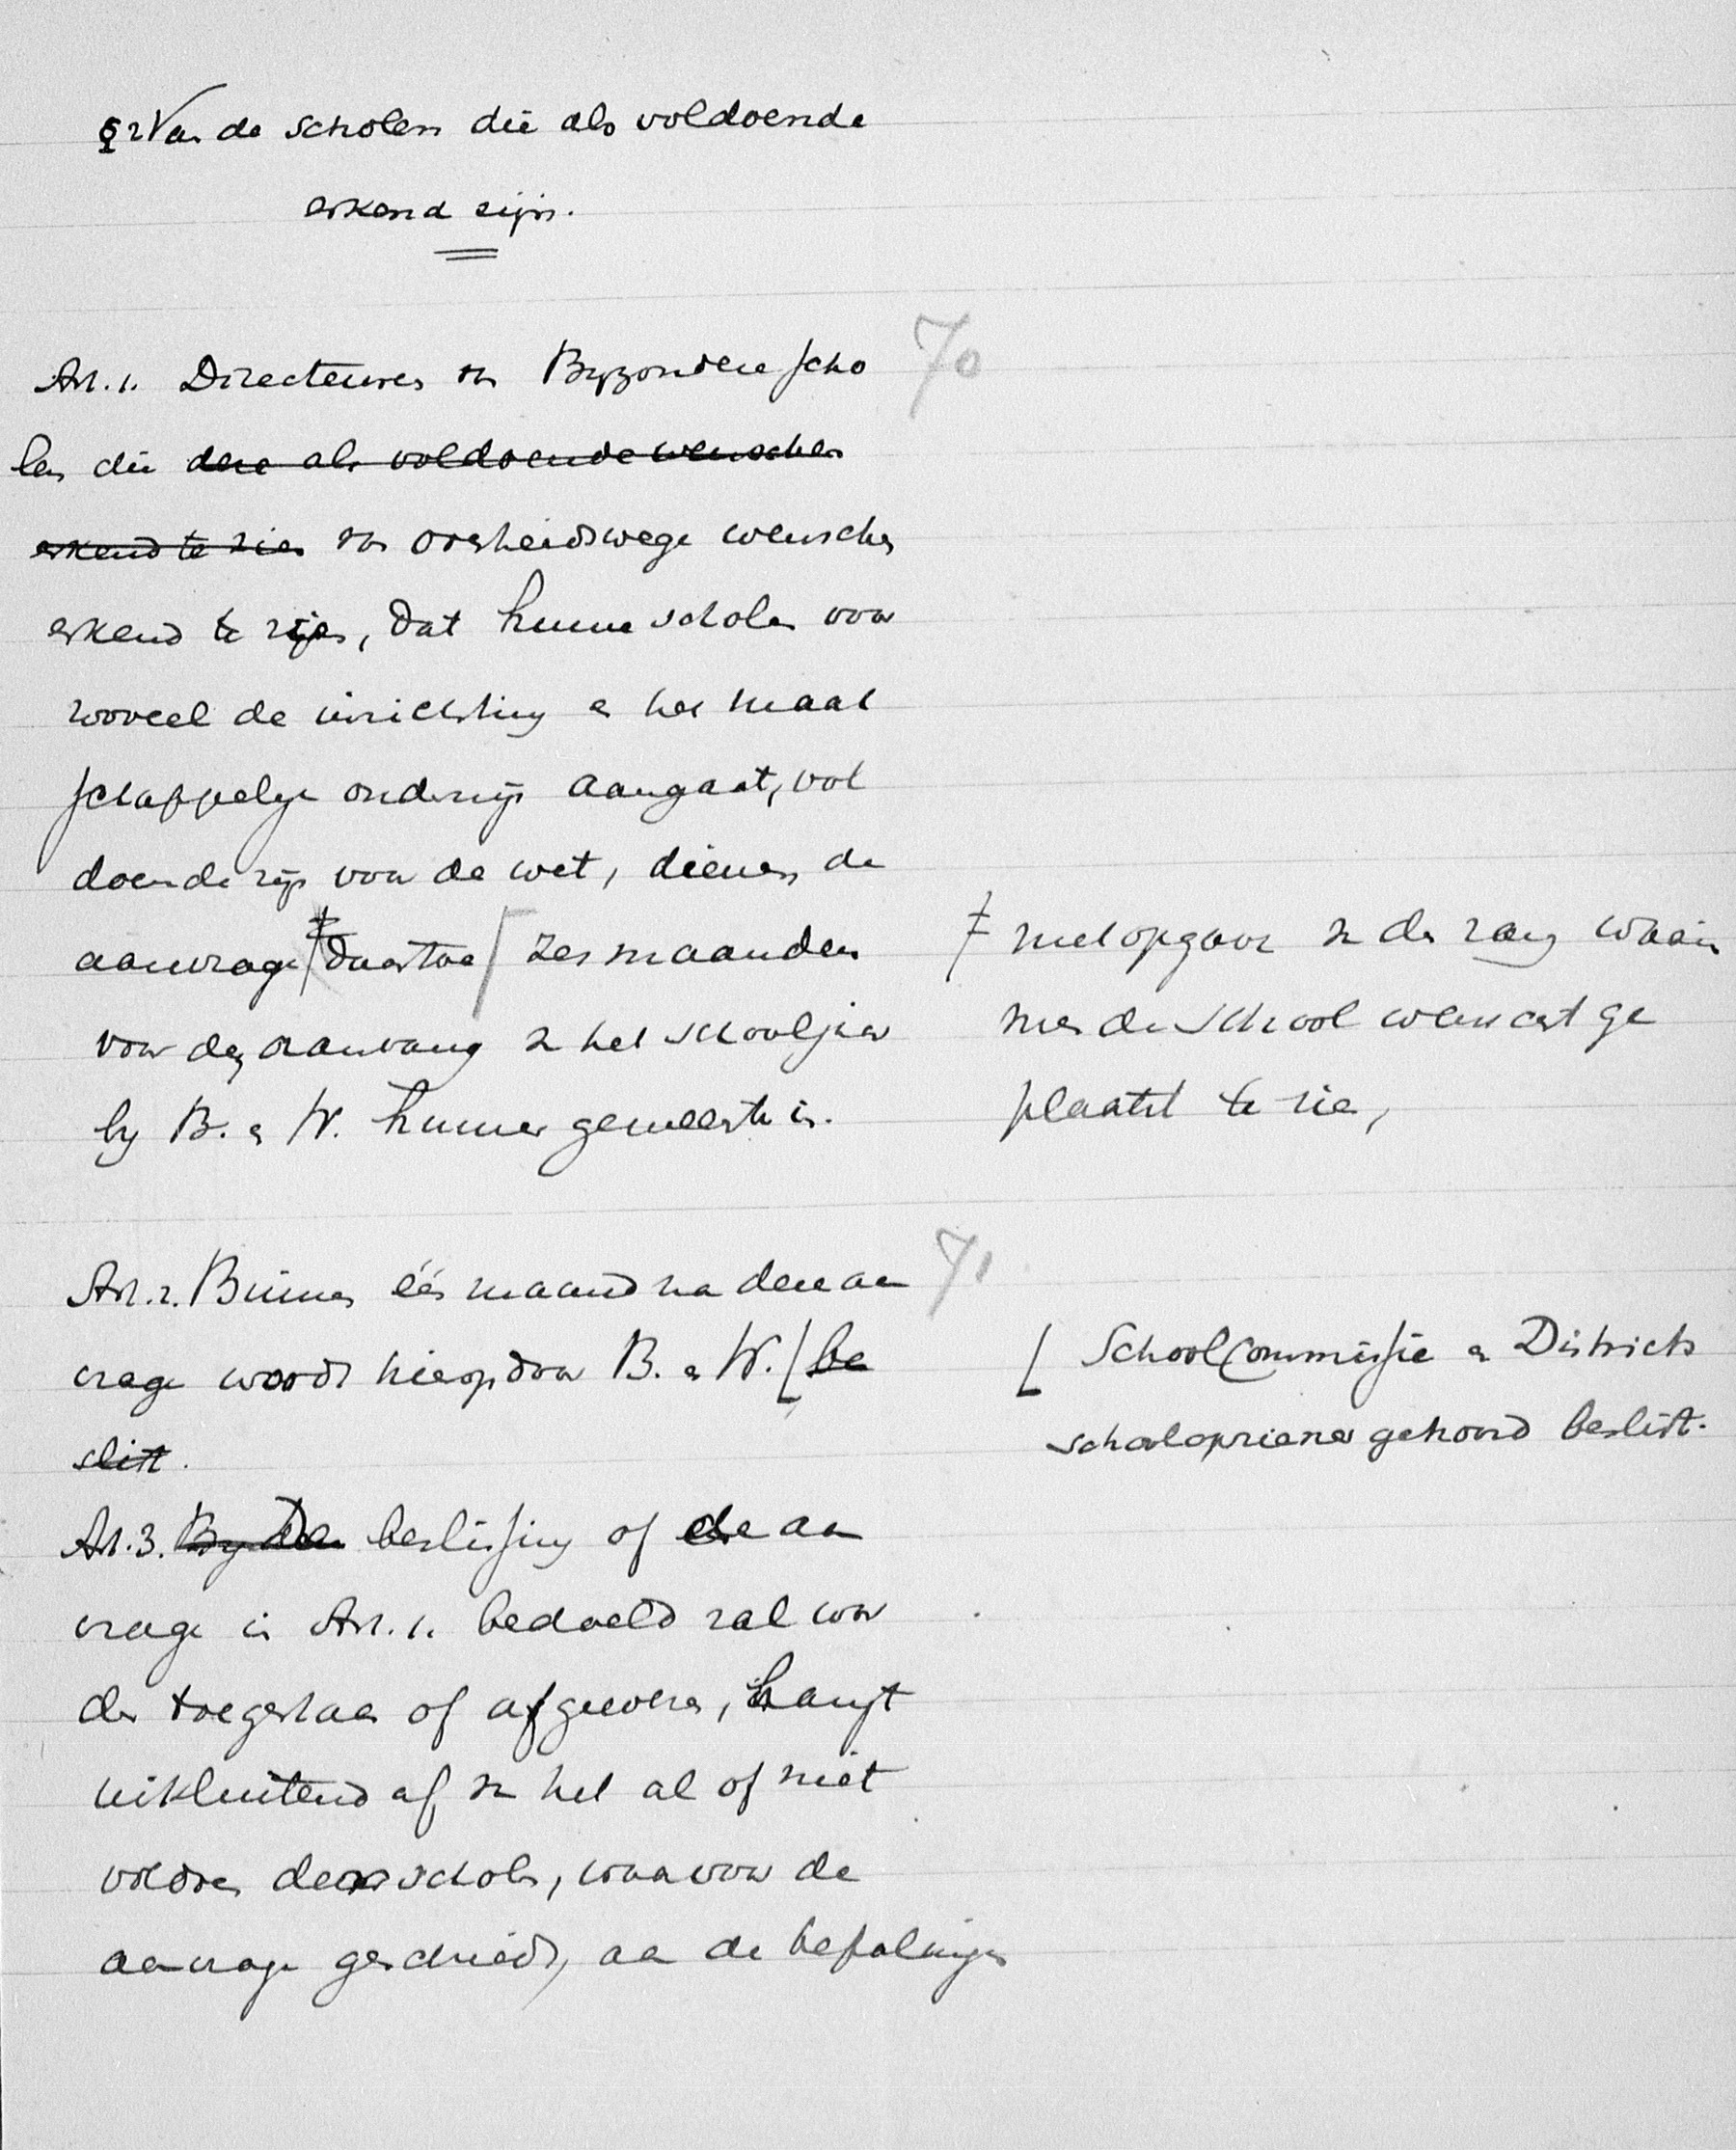 § 2 Van de scholen die als voldoende
erkend zijn.
70
Art. 1. Directeuren van Byzondere scho
len die deze als voldoende wenschen
erkend te zien van overheidswege wenschen
erkend te zien, dat hunne scholen voor
zooveel de inrichting en het maat
schappelijk onderwijs aangaat, vol
doende zijn voor de wet, dienen de
aanvrage ‡ daartoe zes maanden
voor den aanvang van het schooljaar
by B. en W. hunner gemeente in.
‡ met opgave van den rang waarin
men de school wenscht ge
plaatst te zien,
71
Art. 2. Binnen één maand na deze aan
vrage wordt hierop door B. en W. [ be
slist.
[ Schoolcommissie en Districts
schoolopziener gehoord beslist.
Art. 3. By de beslissing of de aan
vrage in Art. 1. bedoeld zal wor
den toegestaan of afgewezen, hangt
uitsluitend af van het al of niet
voldoen dezer scholen, waarvoor de
aanvrage geschiedt, aan de bepalingen